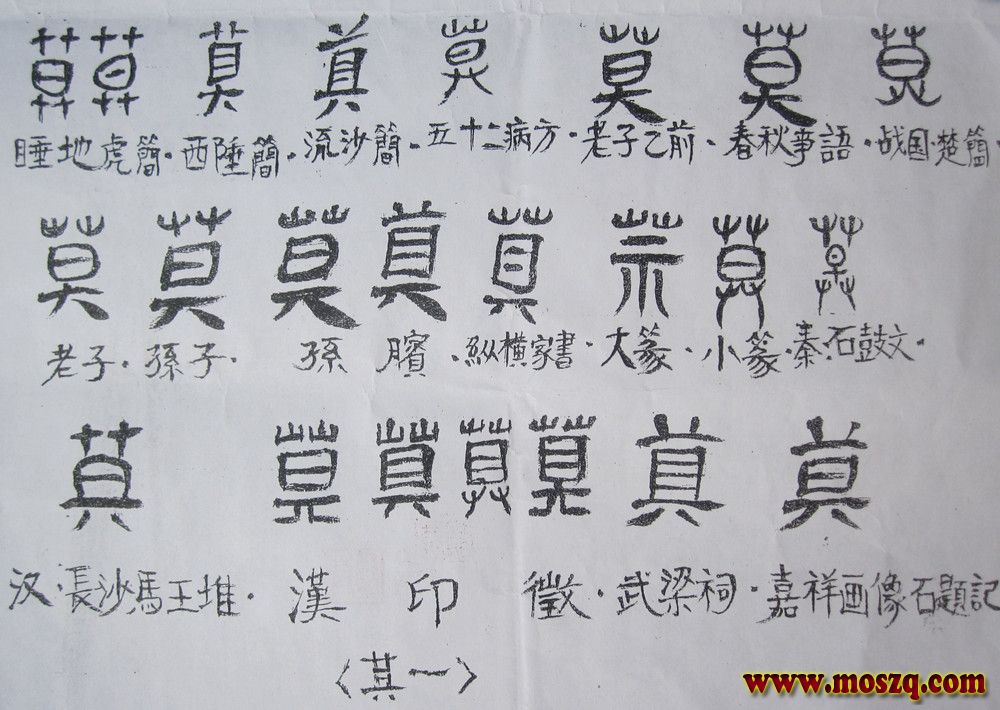 莫莫 莫 莫 莫 莫 莫 莫
睡地虎簡·西陲簡·流沙簡·五十二病方·老子乙前·春秋事語·战国·楚簡·
莫 莫 莫 莫 莫 莫 莫 莫
老子·孫子·孫臏·縱横家書·大篆·小篆·秦·石鼓文·
莫 莫 莫 莫 莫 莫 莫
汉·長沙馬王堆·漢印徵·武梁祠·嘉祥画像石題記
〈其一〉
www.moszq.com